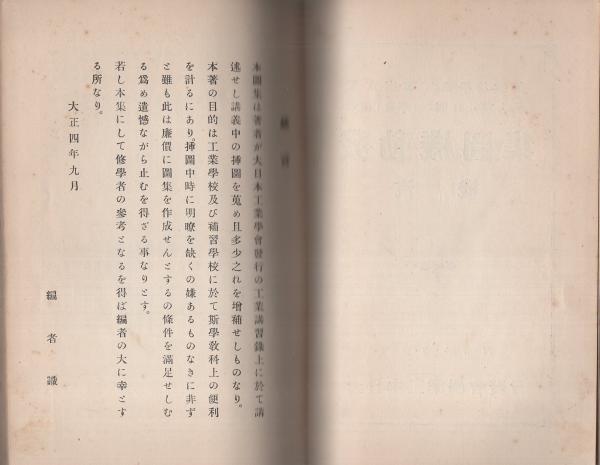 本圖集は著者が大日本工業學會發行の工業講習錄上に於て講
述せし講義中の挿圖を蒐め且多少之れを增補せしものなり。
本著の目的は工業學校及び補習學校に於て斯學敎科上の便利
を計るにあり。挿圖中時に明瞭を缺くの嫌あるものなきに非ず
と雖も此は廉價に圖集を作成せんとするの條件を滿足せしむ
る爲め遺憾ながら止むを得ざる事なりとす。
若し本集にして修學者の參考となるを得ば編者の大に幸とす
る所なり。
大正四年九月
編者識